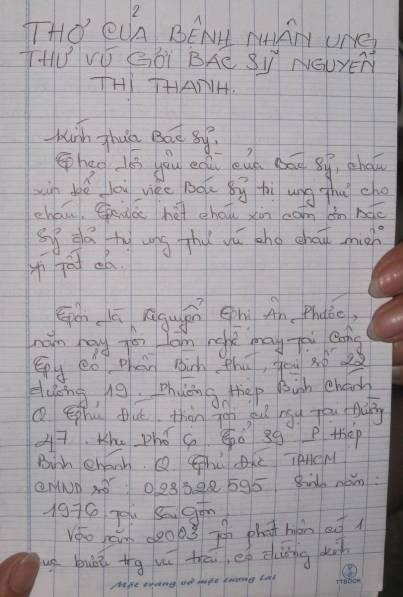 THƠ CỦA BỆNH NHÂN UNG
THƯ VÚ GỞI BÁC SỸ NGUYỄN
THỊ THANH.
Kính thưa Bác Sỹ.
Theo lời yêu cầu của Bác Sỹ, cháu
xin kể lại việc Bác Sỹ trị ung thư cho
cháu. Trước hết cháu xin cám ơn Bác
Sỹ đã trị ung thư vú cho cháu miễn
phí tất cả.
Tôi là Nguyễn Thị Ân Phước,
năm nay tôi làm nghề may tại Công
Ty Cổ Phần Bình Phú, tại số 22
đường 19. Phường Hiệp Bình Chánh
Q Thủ Đức, hiện tôi cư ngụ tại đường
47. Khu Phố 6 Tổ 39 P Hiệp
Bình Chánh. Q Thủ Đức TPHCM
CMND số: 023522595 Sinh năm:
1976 Tại Sài gòn.
Vào năm 2003 tôi phát hiện có 1
cục bướu trg vú trái, có đường kính
Mực trang vở mực tương lai
TTBOOK